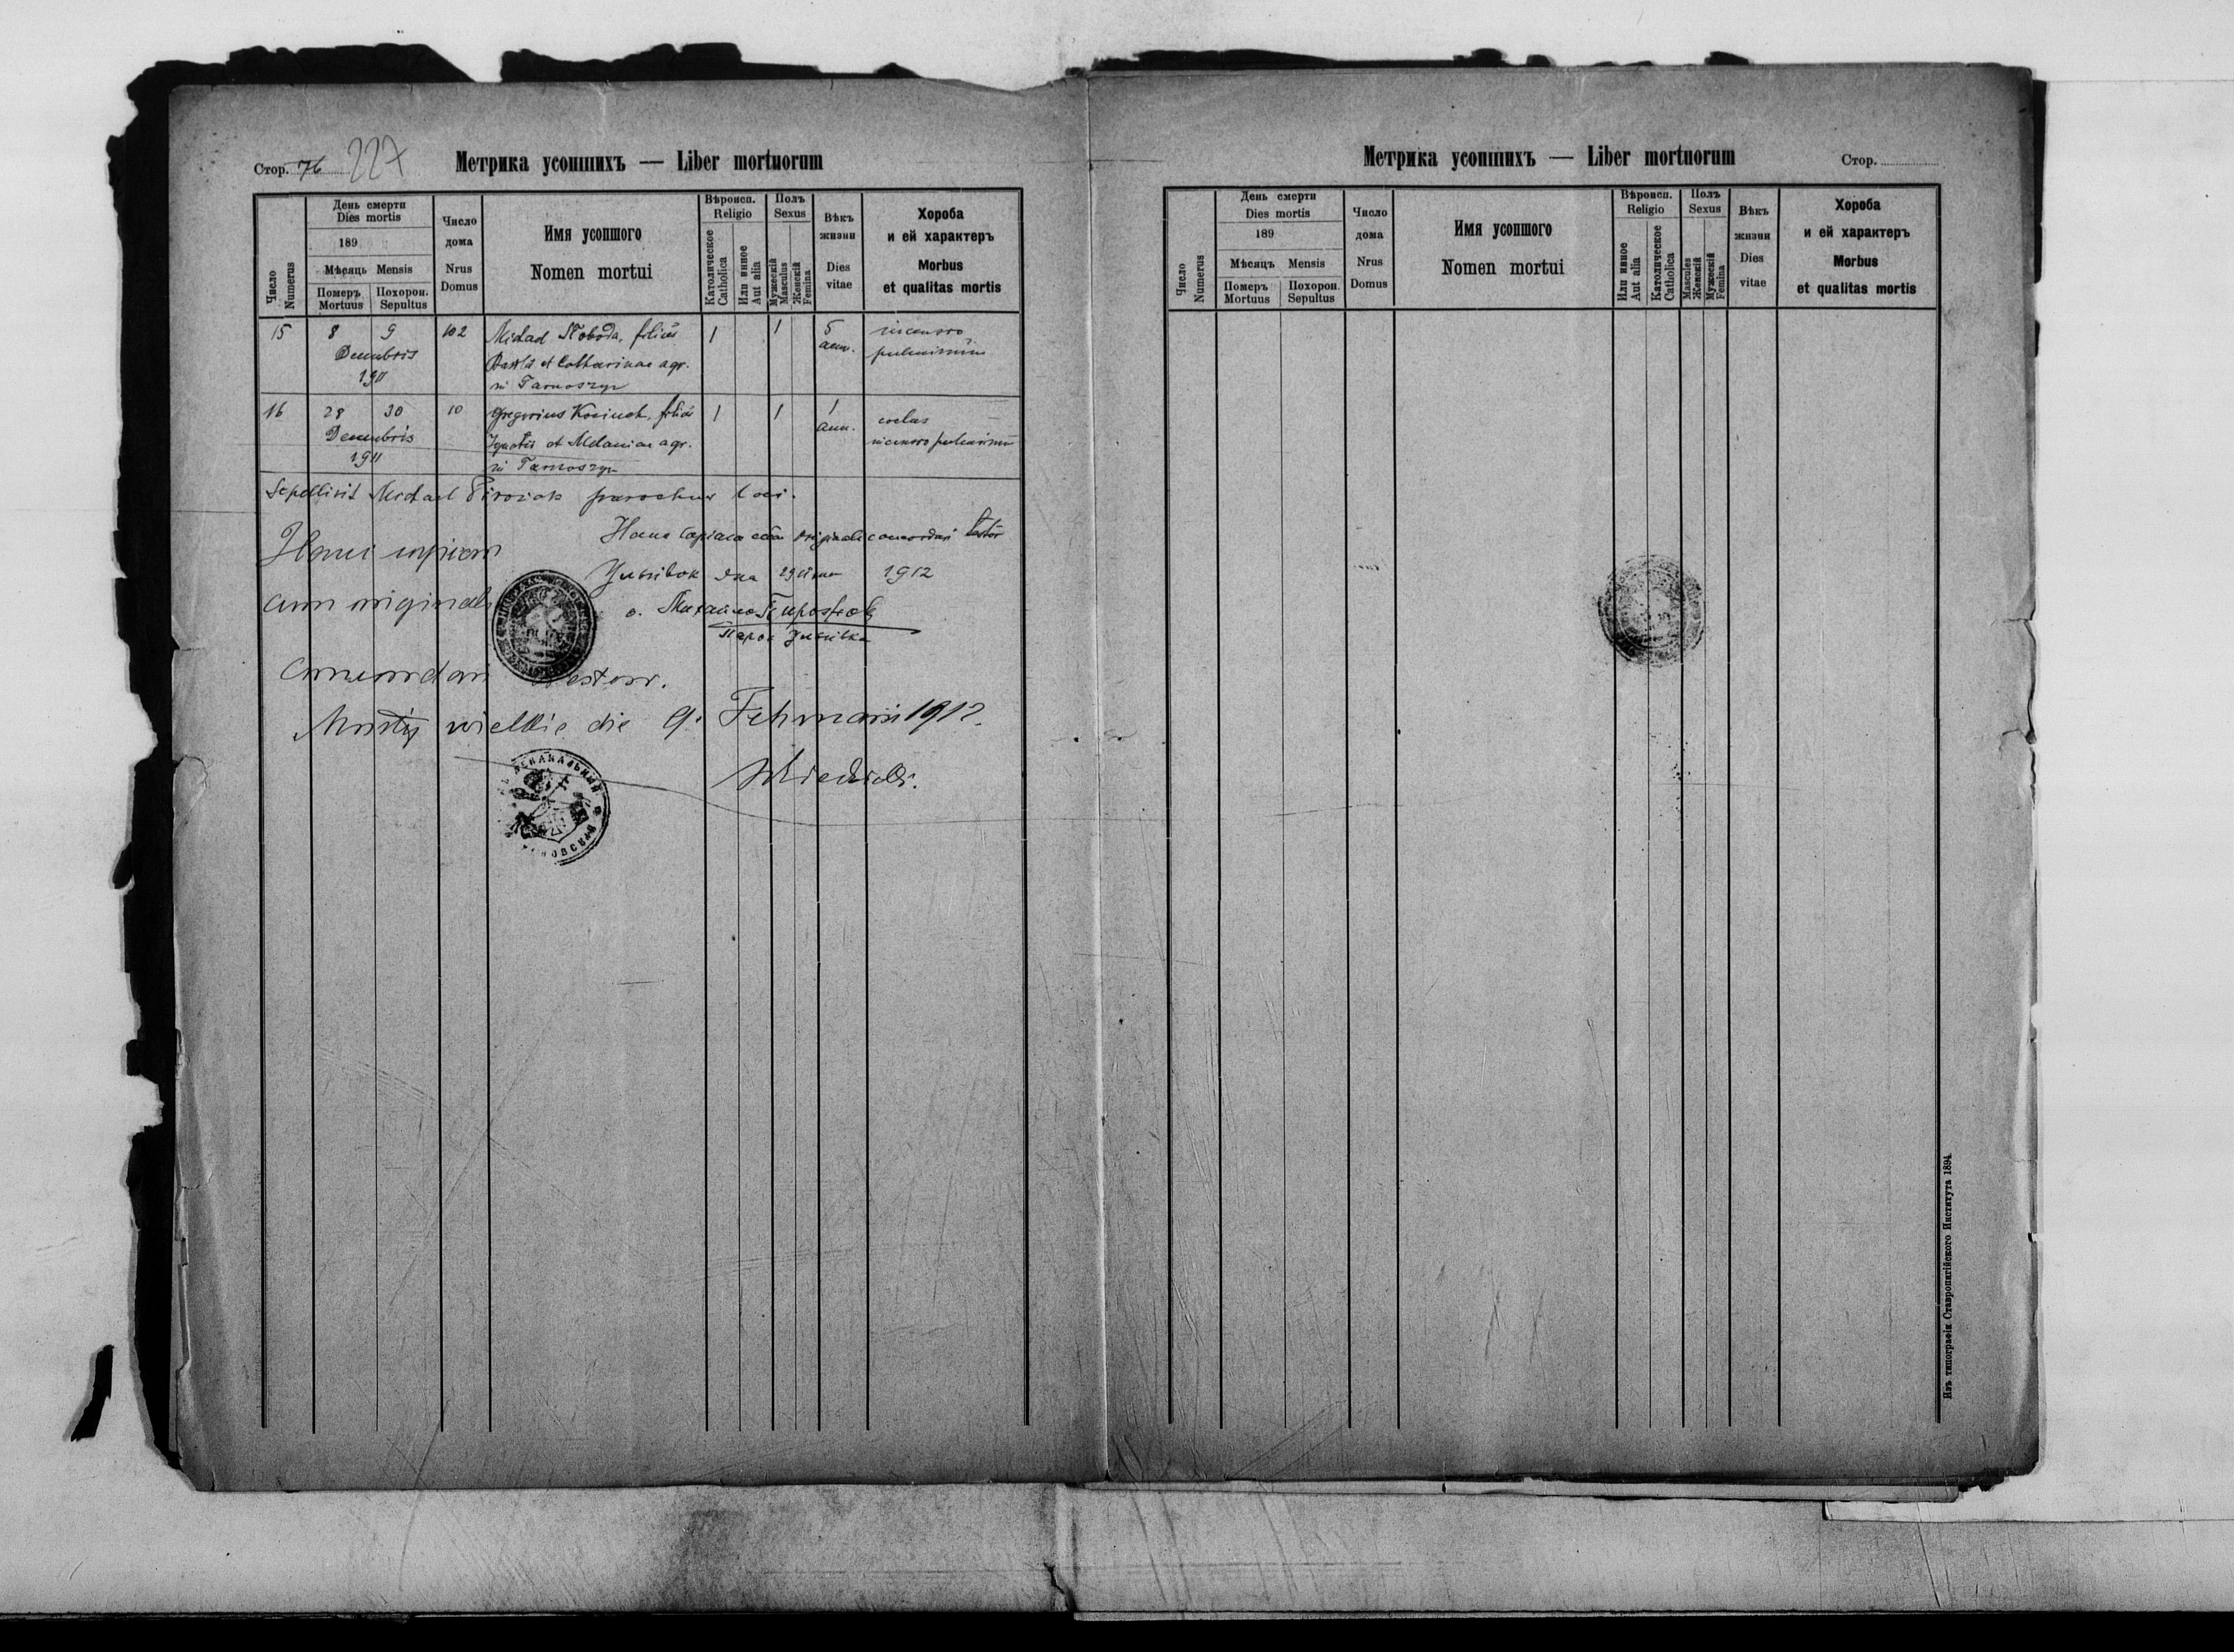 Стор. 76 227
Метрика усопшихъ — Liber mortuorum
Число Numerus
День смерти
Dies mortis
189
Мѣсяць Mensis
Померъ Mortuus
Похорон. Sepultus
Число дома
Nrus Domus
Имя усопшого
Nomen mortui
Вѣроисп.
Religio
Католическое Catholica
Или инное Aut alia
Полъ
Sexus
Мужескій Masculus
Женскій Femina
Вѣкъ жизни
Dies vitae
Хороба
и ей характеръ
Morbus
et qualitas mortis
15 8 9 102 Michael Słoboda, filius 1 1 5
Decembris et Catharinae agr. ann.
1911 in Tarnoszyn
16 28 30 10 Gregorius filius 1 1 1
Decembris Ignatii et Melaniae agr. ann.
1911 in Tarnoszyn
Sepelivit Michael Pirożak parochus loci.
Hanc copiam cum originali concordari testor
Ульгівок дна 29 1912
о. Михайло
Парох
Hanc copiam
cum originali
concordari testor.
Mosty wielkie die 9. Februarii 1912.
Метрика усопшихъ — Liber mortuorum
Стор.
Число Numerus
День смерти
Dies mortis
189
Мѣсяцъ Mensis
Померъ Mortuus
Похорон. Sepultus
Число дома
Nrus Domus
Имя усопшого
Nomen mortui
Вѣроисп.
Religio
Или инное Aut alia
Католическое Catholica
Полъ
Sexus
Mascules Женскій
Мужескій Femina
Вѣкъ жизни
Dies vitae
Хороба
и ей характеръ
Morbus
et qualitas mortis
Изъ типографіи Ставропигійского Института 1894.